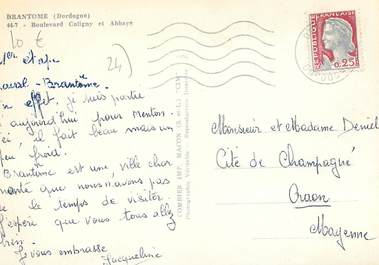 BRANTOME (Dordogne)
467 - Boulevard Coligny et Abbaye
10 €
24)
1er etape
Laval - Brantôme.
En effet, je suis partie
aujourd'hui pour Menton.
ici, il fait beau mais un
peu froid.
Brantôme est une ville char
mante que nous n'avons pas
le temps de visiter.
J'espère que vous tous allez
bien.
Je vous embrasse
Jacqueline
COMBIER IMP. MACON (S.-et-L.) "CIM"
Photographie Véritable - Reproduction Interdite
REPUBLIQUE FRANÇAISE
0,25
Monsieur et Madame
Cité de Champagné
Craon
Mayenne